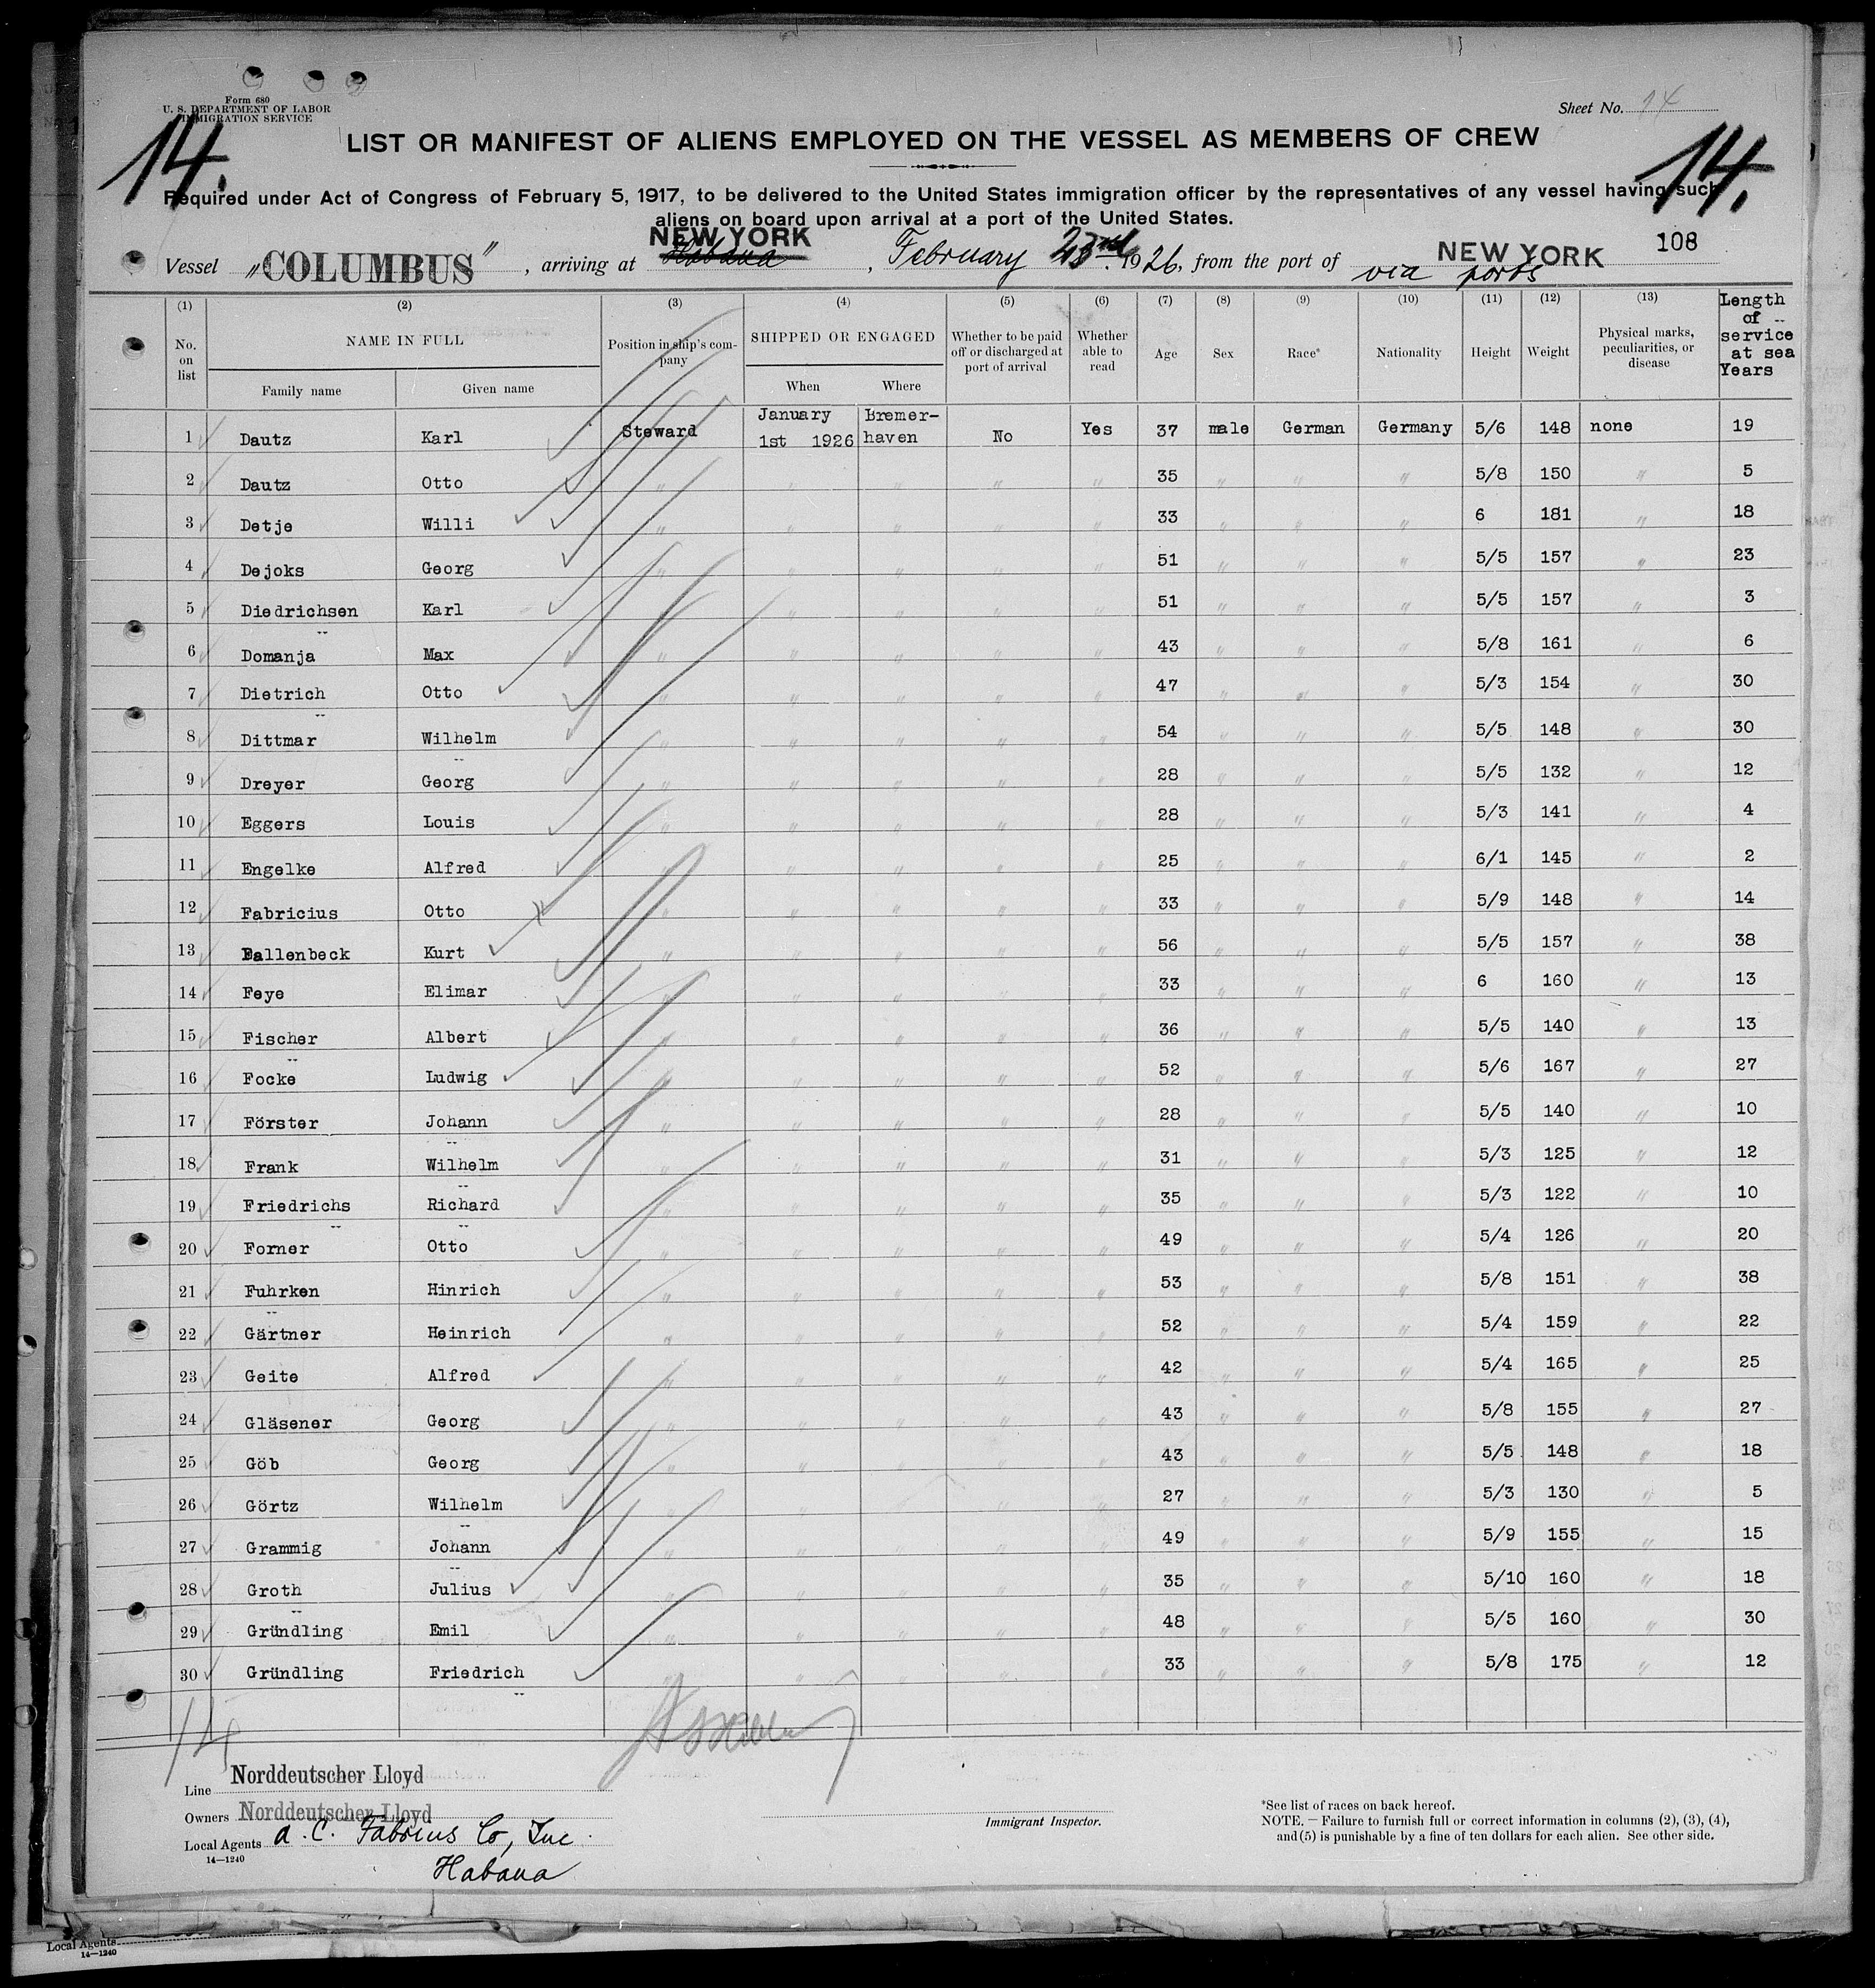 Form 680
U. S. DEPARTMENT OF LABOR
IMMIGRATION SERVICE
Sheet No. 14
14. 14.
LIST OR MANIFEST OF ALIENS EMPLOYED ON THE VESSEL AS MEMBERS OF CREW
Required under Act of Congress of February 5, 1917, to be delivered to the United States immigration officer by the representatives of any vessel having such
aliens on board upon arrival at a port of the United States.
108
Vessel "COLUMBUS", arriving at Habana NEW YORK, February 23rd 1926, from the port of NEW YORK via ports
(1) (2) (3) (4) (5) (6) (7) (8) (9) (10) (11) (12) (13)
No. on list NAME IN FULL Family name Given name Position in ship's company SHIPPED OR ENGAGED When Where Whether to be paid off or discharged at port of arrival Whether able to read Age Sex Race* Nationality Height Weight Physical marks, peculiarities, or disease Length of service at sea Years
1 Dautz Karl Steward January 1st 1926 Bremerhaven No Yes 37 male German Germany 5/6 148 none 19
2 Dautz Otto " " " " " 35 " " " 5/8 150 " 5
3 Detje Willi " " " " " 33 " " " 6 181 " 18
4 Dejoks Georg " " " " " 51 " " " 5/5 157 " 23
5 Diedrichsen Karl " " " " " 51 " " " 5/5 157 " 3
6 Domanja Max " " " " " 43 " " " 5/8 161 " 6
7 Dietrich Otto " " " " " 47 " " " 5/3 154 " 30
8 Dittmar Wilhelm " " " " " 54 " " " 5/5 148 " 30
9 Dreyer Georg " " " " " 28 " " " 5/5 132 " 12
10 Eggers Louis " " " " " 28 " " " 5/3 141 " 4
11 Engelke Alfred " " " " " 25 " " " 6/1 145 " 2
12 Fabricius Otto " " " " " 33 " " " 5/9 148 " 14
13 Fallenbeck Kurt " " " " " 56 " " " 5/5 157 " 38
14 Feye Elimar " " " " " 33 " " " 6 160 " 13
15 Fischer Albert " " " " " 36 " " " 5/5 140 " 13
16 Focke Ludwig " " " " " 52 " " " 5/6 167 " 27
17 Förster Johann " " " " " 28 " " " 5/5 140 " 10
18 Frank Wilhelm " " " " " 31 " " " 5/3 125 " 12
19 Friedrichs Richard " " " " " 35 " " " 5/3 122 " 10
20 Forner Otto " " " " " 49 " " " 5/4 126 " 20
21 Fuhrken Hinrich " " " " " 53 " " " 5/8 151 " 38
22 Gärtner Heinrich " " " " " 52 " " " 5/4 159 " 22
23 Geite Alfred " " " " " 42 " " " 5/4 165 " 25
24 Gläsener Georg " " " " " 43 " " " 5/8 155 " 27
25 Göb Georg " " " " " 43 " " " 5/5 148 " 18
26 Görtz Wilhelm " " " " " 27 " " " 5/3 130 " 5
27 Grammig Johann " " " " " 49 " " " 5/9 155 " 15
28 Groth Julius " " " " " 35 " " " 5/10 160 " 18
29 Gründling Emil " " " " " 48 " " " 5/5 160 " 30
30 Gründling Friedrich " " " " " 33 " " " 5/8 175 " 12
14
Line Norddeutscher Lloyd
Owners Norddeutscher Lloyd
Local Agents
Habana
14—1240
Immigrant Inspector.
*See list of races on back hereof.
NOTE.—Failure to furnish full or correct information in columns (2), (3), (4),
and (5) is punishable by a fine of ten dollars for each alien. See other side.
Local Agents
14—1240